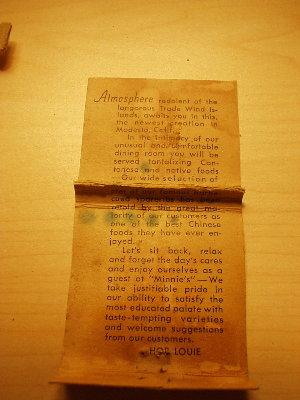 Atmosphere redolent of the
langorous Trade Wind Is-
lands, awaits you in this,
the newest creation in
Modesto, Calif.
In the intimacy of our
unusual and comfortable
dining room you will be
served tantalizing Can-
tonese and native foods
Our wide selection of
cued spareribs has been
noted by the great ma-
jority of our customers as
one of the best Chinese
foods they have ever en-
joyed.
Let's sit back, relax
and forget the day's cares
and enjoy ourselves as a
guest at "Minnie's"—We
take justifiable pride in
our ability to satisfy the
most educated palate with
taste-tempting varieties
and welcome suggestions
from our customers.
HOP LOUIE